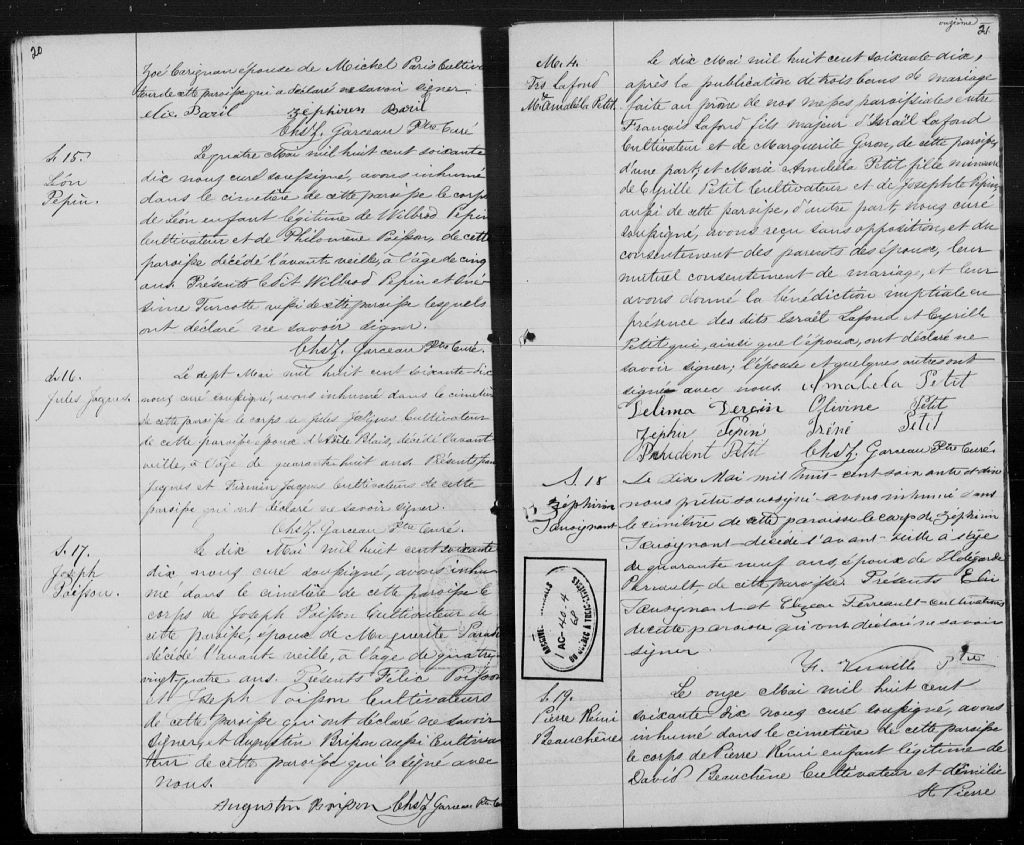 20
Zoé Carignan épouse de Michel Paris Cultiva
teur de cette paroisse qui a déclaré ne savoir signer
elie Baril Zéphiren Baril
Chs Z. Garceau Ptre Curé
S. 15.
Léon
Pepin.
Le quatre Mai mil huit cent soixante
dix nous curé soussigné, avons inhumé
dans le cimetière de cette paroisse le corps
de Léon enfant légitime de Wilbrod Pepin
Cultivateur et de Philomène Poisson, de cette
paroisse décédé l'avant veille, à l'âge de cinq
ans. Présents le dit Wilbrod Pepin et Oné
sime Turcotte aussi de cette paroisse lesquels
ont déclaré ne savoir signer.
Chs Z. Garceau Ptre Curé.
S. 16.
Jules Jaques
Le sept Mai mil huit cent soixante dix
nous curé soussigné, avons inhumé dans le cimetière
de cette paroisse le corps de Jules Jacques Cultivateur
de cette paroisse époux d'Adèle Blais, décédé l'avant
veille, à l'âge de quarante huit ans. Présents
Jaques et Firmin Jaques Cultivateurs de cette
paroisse qui ont déclaré ne savoir signer.
Chs Z. Garceau Ptre Curé.
S. 17.
Joseph
Poisson.
Le dix Mai mil huit cent soixante
dix nous curé soussigné, avons inhu
mé dans le cimetière de cette paroisse le
corps de Joseph Poisson Cultivateur de
cette paroisse, époux de Marguerite
décédé l'avant-veille, à l'âge de quatre
vingt quatre ans. Présents Félix Poisson
et Joseph Poisson Cultivateurs
de cette paroisse qui ont déclaré ne savoir
signer, et Augustin Brisson aussi Cultiva
teur de cette paroisse qui a signé avec
nous.
Augustin Chs Z Garceau Ptre Curé
onzième 21
M. 4.
Frs Lafond
&
M. Amabila Petit.
Le dix Mai mil huit cent soixante dix,
après la publication de trois bans de mariage
faite au prône de nos messes paroissiales entre
François Lafond fils majeur d'Israël Lafond
Cultivateur et de Marguerite Giron, de cette paroisse,
d'une part, et Marie Amabila Petit fille mineure
de Cyrille Petit Cultivateur et de Josephte Pepin,
aussi de cette paroisse, d'autre part, nous curé
soussigné, avons reçu sans opposition, et du
consentement des parents des époux, leur
mutuel consentement de mariage, et leur
avons donné la bénédiction nuptiale en
présence des dits Israël Lafond & Cyrille
Petit qui, ainsi que l'époux, ont déclaré ne
savoir signer; l'épouse et quelques autres ont
signé avec nous. Amabela Petit
Zelima Olivine Petit
Zéphir Pepin Iréné Petit
Président Petit Chs Z. Garceau Ptre Curé.
S. 18
Zéphirin
Tousignant
Le dix Mai mil huit-cent soixante et dix
nous prêtre soussigné avons inhumé dans
le cimetière de cette paroisse le corps de Zéphirin
Tousignant décédé l'avant-veille à l'âge
de quarante neuf ans, époux de Hedégarde
Perrault, de cette paroisse. Présents Elie
Tousignant et Elzear Perreault cultivateurs
de cette paroisse qui ont déclaré ne savoir
signer.
Ptre
AG-40-4
68
S. 19.
Pierre Rémi
Beauchêne
Le onze Mai mil huit cent
soixante dix nous curé soussigné, avons
inhumé dans le cimetière de cette paroisse
le corps de Pierre Rémi enfant légitime de
David Beauchêne Cultivateur et d'émilie
St Pierre